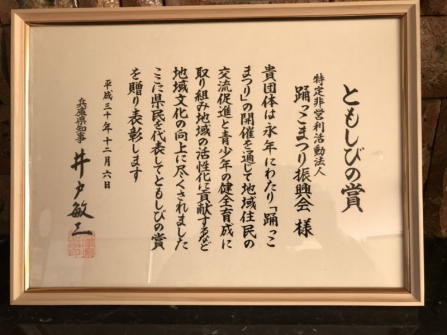 ともしびの賞
特定非営利活動法人
踊っこまつり振興会 様
貴団体は永年にわたり「踊っこ
まつり」の開催を通じて地域住民の
交流促進と青少年の健全育成に
取り組み地域の活性化に貢献するなど
地域文化の向上に尽くされました
ここに県民を代表してともしびの賞
を贈り表彰します
平成三十年十二月六日
兵庫県知事 井戸敏三